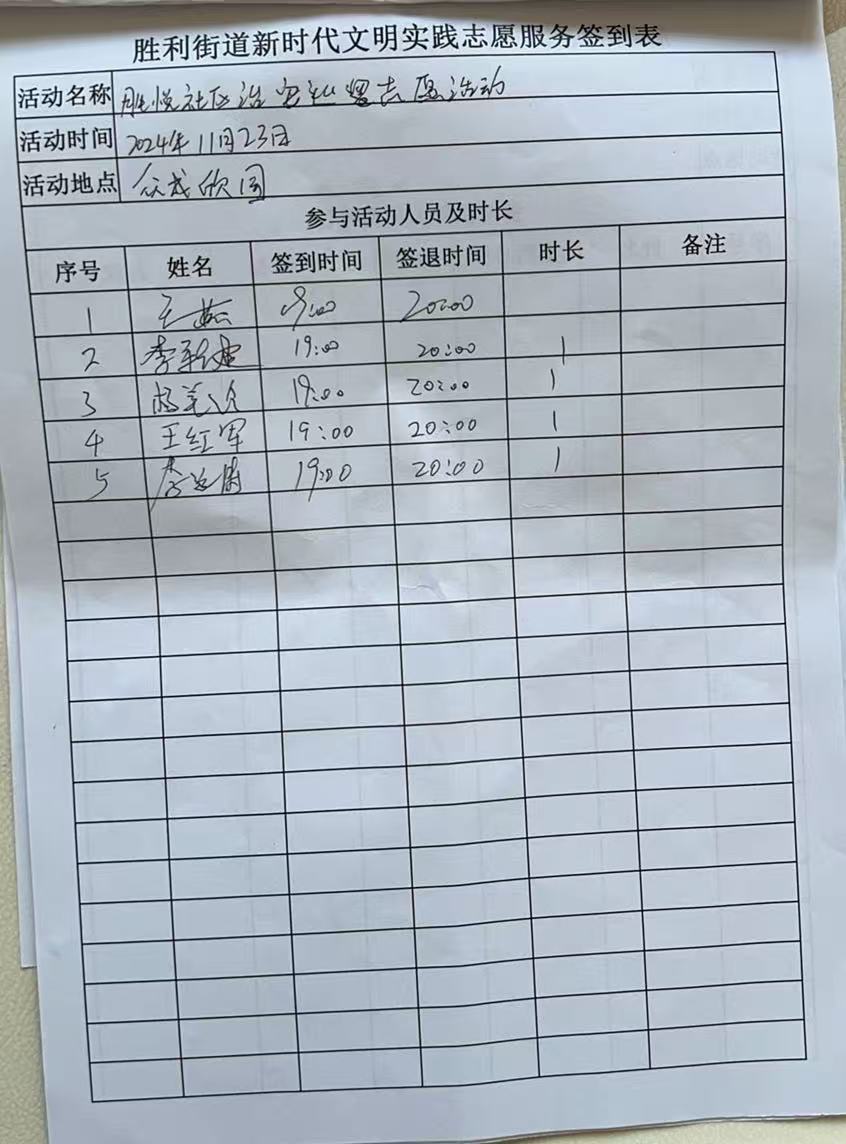 胜利街道新时代文明实践志愿服务签到表
活动名称 胜悦社区治安巡逻志愿活动
活动时间 2024年11月23日
活动地点 众成欣园
参与活动人员及时长
序号 姓名 签到时间 签退时间 时长 备注
1 王 19:00 20:00
2 李 19:00 20:00 1
3 杨 19:00 20:00 1
4 王红军 19:00 20:00 1
5 李 19:00 20:00 1